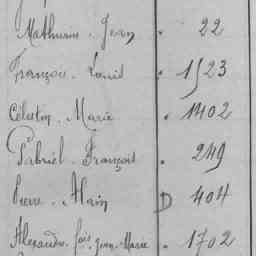 Mathurin. Jean . 22
François. Louis . 1523
Célestin. Marie . 1402
Gabriel. François . 249
Pierre. Alain D 404
Alexandre. fois. Jean. Marie . 1702